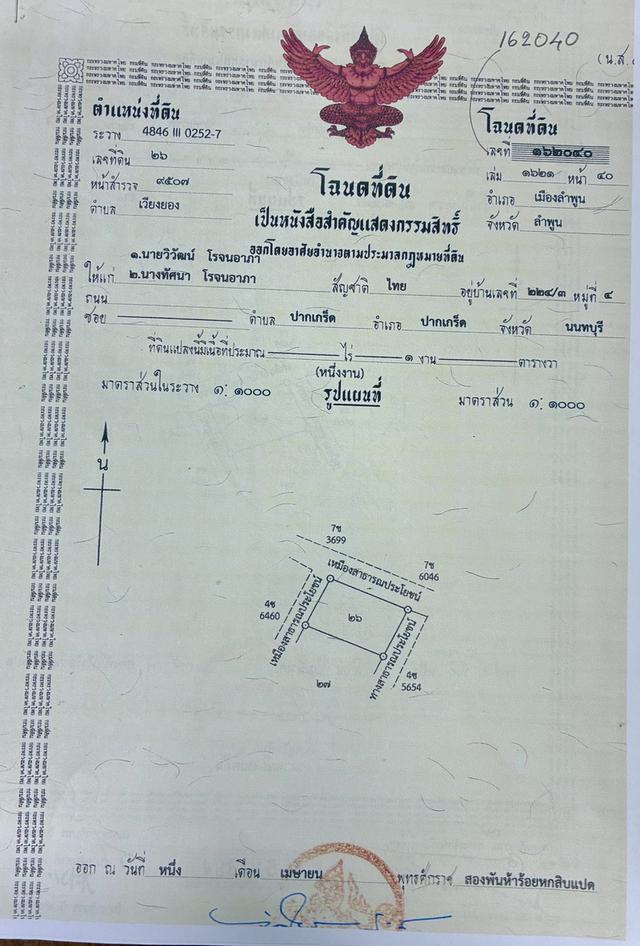 162040
(น.ส.
ตำแหน่งที่ดิน
ระวาง 4846 III 0252-7
เลขที่ดิน ๒๖
หน้าสำรวจ ๙๕๐๗
ตำบล เวียงยอง
โฉนดที่ดิน
เลขที่ ๑๖๒๐๔๐
เล่ม ๑๖๒๑ หน้า ๔๐
อำเภอ เมืองลำพูน
จังหวัด ลำพูน
โฉนดที่ดิน
เป็นหนังสือสำคัญแสดงกรรมสิทธิ์
ออกโดยอาศัยอำนาจตามประมวลกฎหมายที่ดิน
๑.นายวิวัฒน์ โรจนอาภา
ให้แก่ ๒.นางทัศนา โรจนอาภา สัญชาติ ไทย อยู่บ้านเลขที่ ๒๒๔/๓ หมู่ที่ ๔
ถนน
ซอย ตำบล ปากเกร็ด อำเภอ ปากเกร็ด จังหวัด นนทบุรี
ที่ดินแปลงนี้มีเนื้อที่ประมาณ ไร่ ๑ งาน ตารางวา
(หนึ่งงาน)
มาตราส่วนในระวาง ๑: ๑๐๐๐ รูปแผนที่ มาตราส่วน ๑: ๑๐๐๐
น
7ช
3699
เหมืองสาธารณประโยชน์
7ช
6046
4ช
6460
เหมืองสาธารณประโยชน์
๒๖
ทางสาธารณประโยชน์
4ช
5654
๒๗
ออก ณ วันที่ หนึ่ง เดือน เมษายน พุทธศักราช สองพันห้าร้อยหกสิบแปด